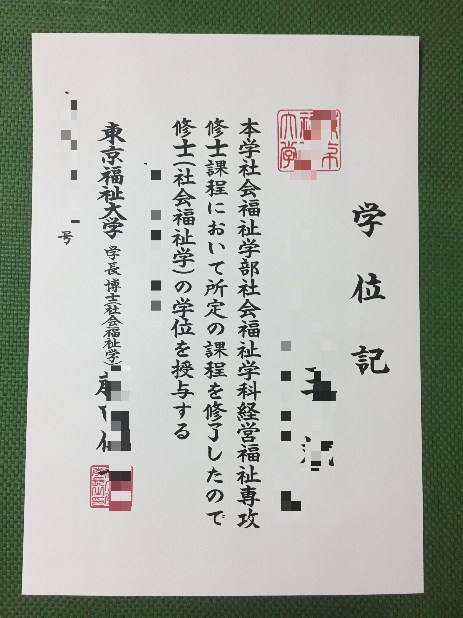 学位記
本学社会福祉学部社会福祉学科経営福祉専攻
修士課程において所定の課程を修了したので
修士(社会福祉学)の学位を授与する
東京福祉大学 学長 博士(社会福祉学)
号